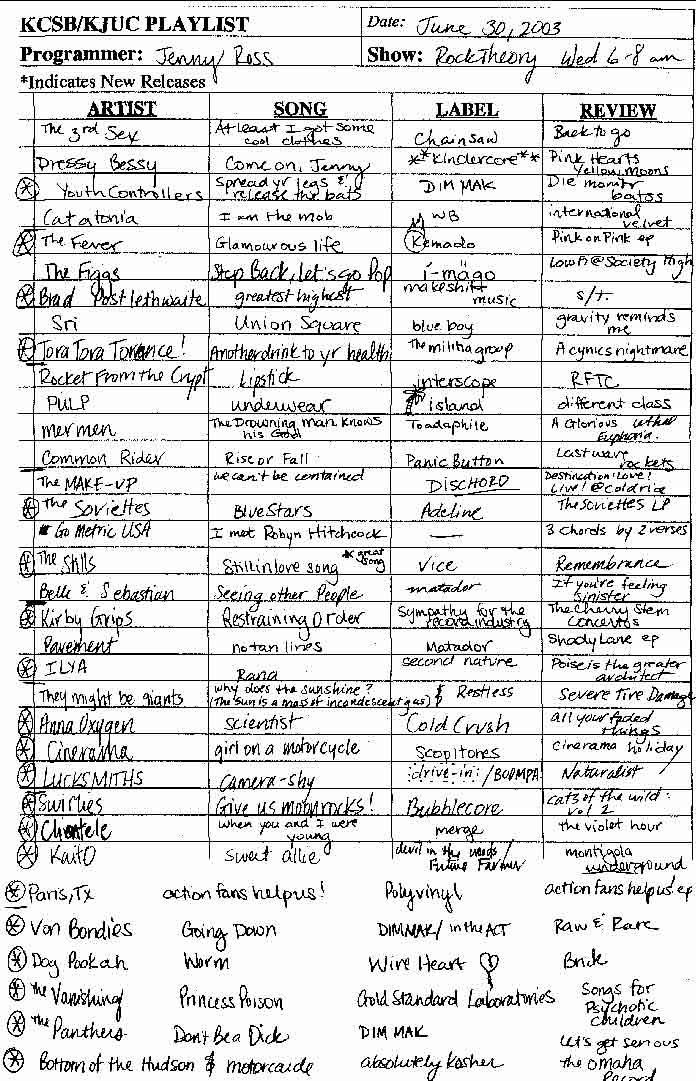 KCSB/KJUC PLAYLIST Date: June 30, 2003
Programmer: Jenny Ross Show: RockTheory Wed 6-8 am
*Indicates New Releases
ARTIST SONG LABEL REVIEW
The 3rd Sex At least I got some cool clothes Chainsaw Back to go
Dressy Bessy Come on, Jenny **Kindercore** Pink Hearts Yellow moons
* Youth Controllers Spread yr legs & release the bats DIM MAK Die monitr batss
Catatonia I am the mob WB international velvet
* The Fever Glamourous life Kemado Pink on Pink ep
The Figgs Step Back, let's go Pop i-mägo Low Fi @ Society High
* Brad Postlethwaite greatest highest makeshift music s/t.
Sri Union Square blue boy gravity reminds me
* Tora Tora Torrance! Another drink to yr health The militia group A cynics nightmare
Rocket From the Crypt Lipstick interscope RFTC
PULP underwear island different class
mermen The Drowning man knows his God Toadaphile A Glorious lethal Euphoria.
Common Rider Rise or Fall Panic Button Last wave rockets
The MAKE-UP we can't be contained DISCHORD Destination: Love! Live! @ cold rice
* The Soviettes Blue Stars Adeline The Soviettes LP
Go Metric USA I met Robyn Hitchcock — 3 chords by 2 verses
* The Stills Still in love song * great song Vice Remembrance
Belle & Sebastian Seeing other People matador If you're feeling sinister
* Kirby Grips Restraining Order Sympathy for the record industry The Cherry Stem Concertos
Pavement no tan lines Matador Shady Lane ep
* ILYA Rana second nature Poise is the greater architect
They might be giants why does the sunshine? (The sun is a mass of incandescent gas) & Restless Severe Tire Damage
* Anna Oxygen scientist Cold Crush all your faded things
* Cinerama girl on a motorcycle Scopitones cinerama holiday
* LUCKSMITHS camera-shy drive-in /BOOMPA! Naturalist
* Swirlies Give us moonrocks! Bubblecore cats of the wild: vol 2
* Clientele When you and I were young merge the violet hour
* KaitO sweet allie devil in the woods / Future Farmer montigola underground
* Paris, Tx action fans help us! Polyvinyl action fans help us! ep
* Von Bondies Going Down DIMMAK/ in the ACT Raw & Rare
* Dog Pookah Worm Wire Heart Brick
* The Vanishing Princess Poison Gold Standard Laboratories Songs for Psychotic Children
* The Panthers Dont Be a Dick DIM MAK Let's get serious
* Bottom of the Hudson & motorcade absolutely kosher the omaha Record